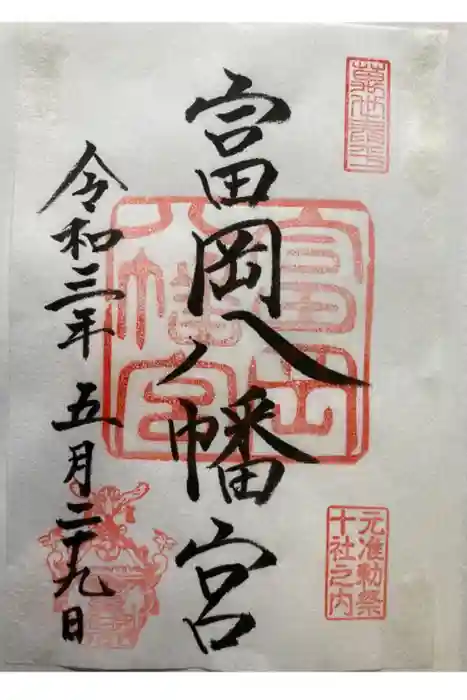 萬世泰平
富岡八幡宮
富岡八幡宮
元准勅祭
十社之内
令和三年 五月二十九日